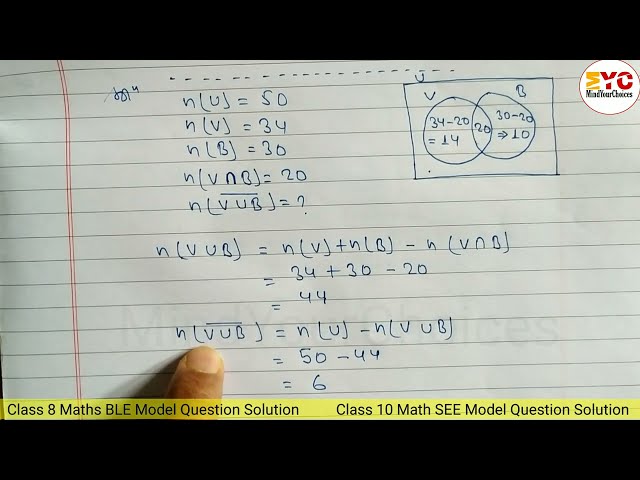 Solⁿ
n(U) = 50
n(V) = 34
n(B) = 30
n(V∩B) = 20
n(V̅∪̅B̅) = ?
U
V
B
34-20
= 14
20
30-20
⇒ 10
n(V∪B) = n(V)+n(B) - n(V∩B)
= 34 + 30 - 20
= 44
n(V̅∪̅B̅) = n(U) - n(V∪B)
= 50 - 44
= 6
MYC
MindYourChoices
MindYourChoices
Class 8 Maths BLE Model Question Solution
Class 10 Math SEE Model Question Solution